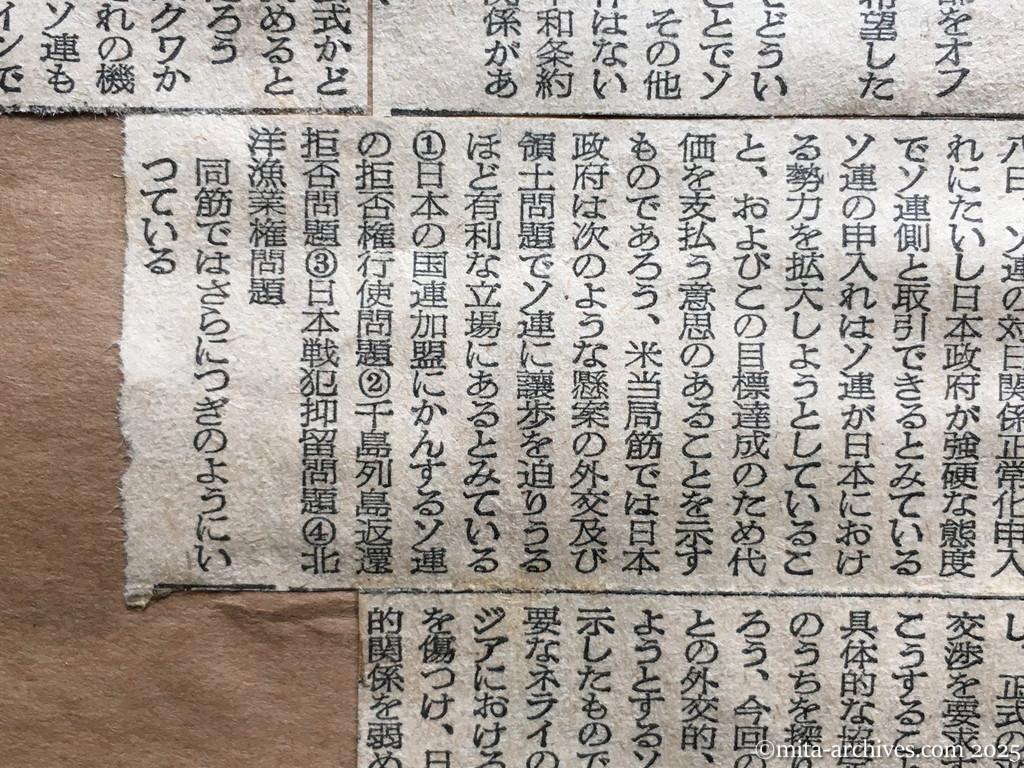 部をオフ
希望した
とどうい
ことでソ
その他
はない
平和条約
関係があ
式かど
めると
ろう
クワか
れの機
ソ連も
インで
八日、ソ連の対日関係正常化申入
れにたいし日本政府が強硬な態度
でソ連側と取引できるとみている
ソ連の申入れはソ連が日本におけ
る勢力を拡大しようとしているこ
と、およびこの目標達成のため代
価を支払う意思のあることを示す
ものであろう、米当局筋では日本
政府は次のような懸案の外交及び
領土問題でソ連に譲歩を迫りうる
ほど有利な立場にあるとみている
①日本の国連加盟にかんするソ連
の拒否権行使問題②千島列島返還
拒否問題③日本戦犯抑留問題④北
洋漁業権問題
同筋ではさらにつぎのようにい
つている
し、正式の
交渉を要求
こうするこ
具体的な
のうちを探り
ろう、今回の
との外交的、
ようとするソ
示したもので
要なネライの
ジアにおける
を傷つけ、日
的関係を弱め
©mita-archives.com 2025